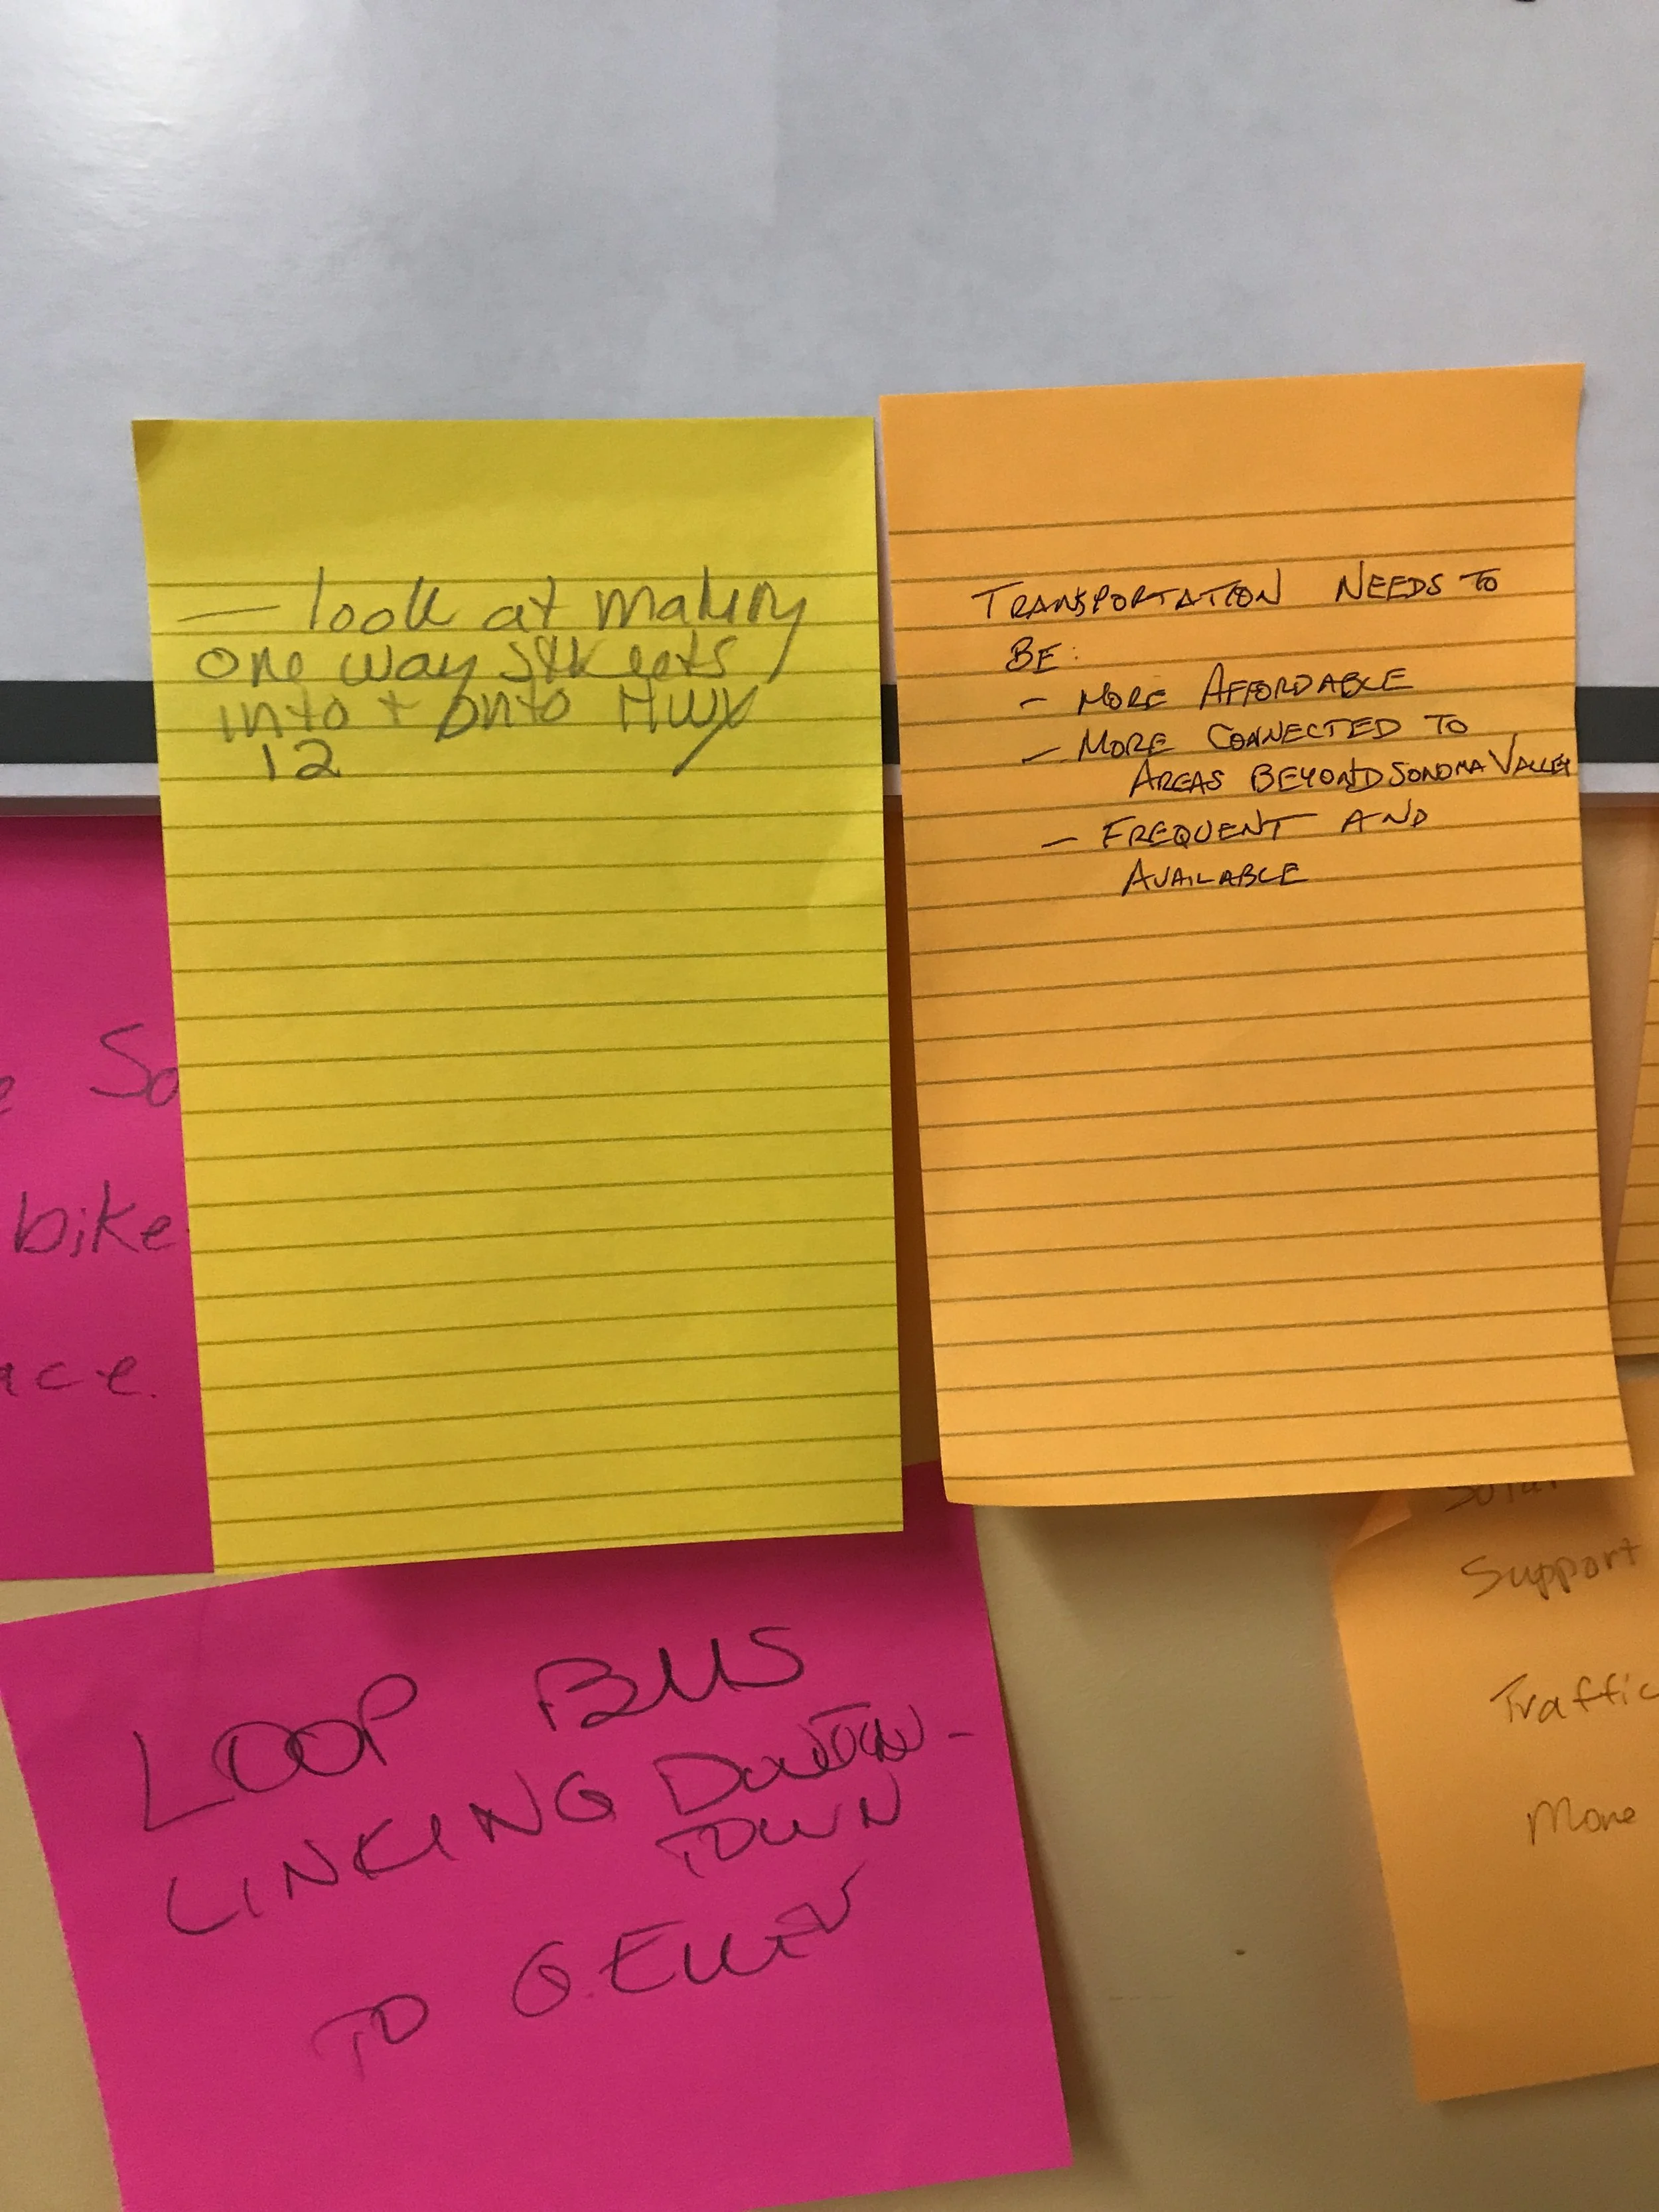 — look at making
one way streets
into + onto Hwy
12
TRANSPORTATION NEEDS TO
BE:
- MORE AFFORDABLE
- MORE CONNECTED TO
AREAS BEYOND SONOMA VALLEY
- FREQUENT AND
AVAILABLE
So
bike
ace.
LOOP BUS
LINKING DOWNTOWN-
TOWN
TO
Support
Traffic
More